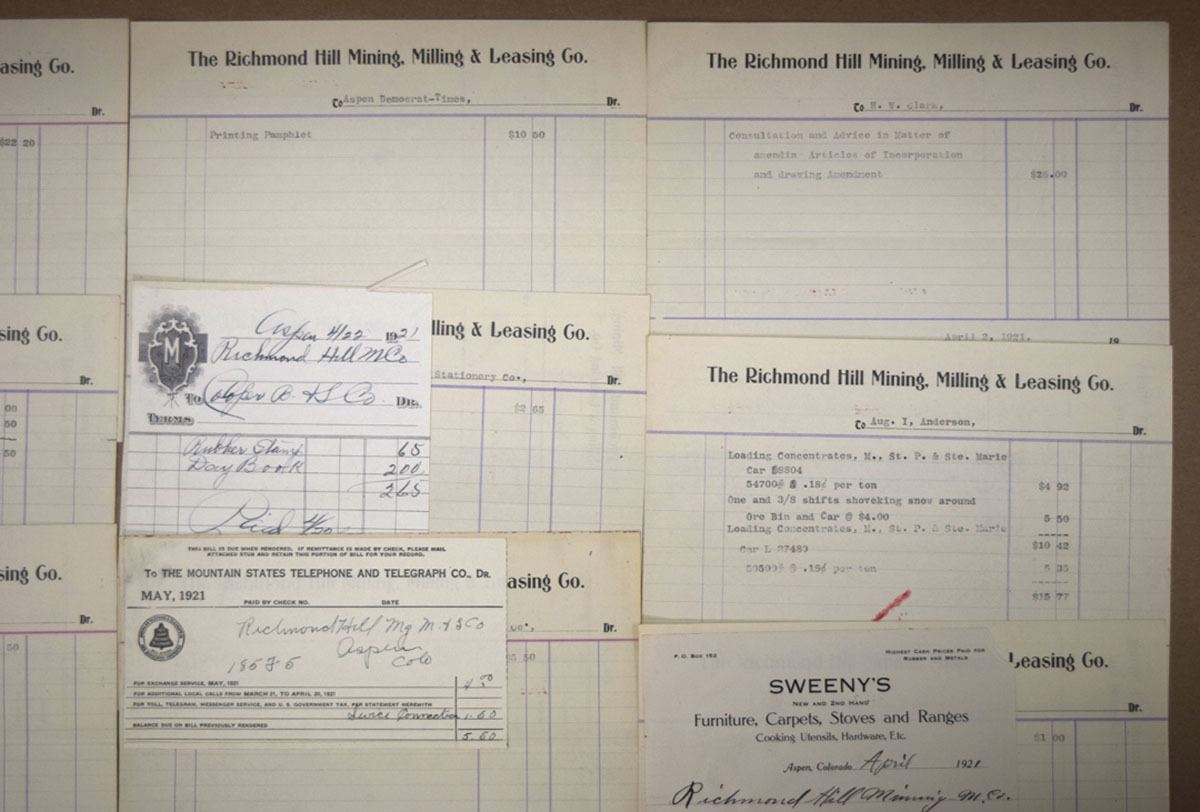 asing Co.
Dr.
$22 20
sing Co.
Dr.
00
50
50
sing Co.
Dr.
50
The Richmond Hill Mining, Milling & Leasing Co.
To Aspen Democrat-Times, Dr.
Printing Pamphlet $10 50
lling & Leasing Co.
Stationery Co., Dr.
$2 65
Aspen 4/22 1921
Richmond Hill M Co
To Cooper B. & S Co. DR.
TERMS
M
Rubber Stamp 65
Day Book 200
265
Paid 4/20
asing Co.
Dr.
50
THIS BILL IS DUE WHEN RENDERED. IF REMITTANCE IS MADE BY CHECK, PLEASE MAIL
ATTACHED STUB AND RETAIN THIS PORTION OF BILL FOR YOUR RECORD.
To THE MOUNTAIN STATES TELEPHONE AND TELEGRAPH CO., DR.
MAY, 1921
PAID BY CHECK NO. DATE
Richmond Hill Mg M & S Co
Aspen
185F5 Colo
FOR EXCHANGE SERVICE, MAY, 1921 4.00
FOR ADDITIONAL LOCAL CALLS FROM MARCH 21, TO APRIL 20, 1921
FOR TOLL, TELEGRAM, MESSENGER SERVICE, AND U. S. GOVERNMENT TAX, PER STATEMENT HEREWITH
Connection 1.60
BALANCE DUE ON BILL PREVIOUSLY RENDERED
5.60
The Richmond Hill Mining, Milling & Leasing Co.
To H. W. Clark, Dr.
Consultation and Advice in Matter of
amendin Articles of Incorporation
and drawing Amendment $25.00
April 2, 1921. 19
The Richmond Hill Mining, Milling & Leasing Co.
To Aug. I, Anderson, Dr.
Loading Concentrates, M., St. P. & Ste. Marie
Car #8804
54700# @ .18¢ per ton $4 92
One and 3/8 shifts shoveking snow around
Ore Bin and Car @ $4.00 5 50
Loading Concentrates, M., St. P. & Ste. Marie
$10 42
Car L 27489
59500# @ .18¢ per ton 5 35
$15 77
Leasing Co.
Dr.
$1 00
P. O. BOX 152
HIGHEST CASH PRICES PAID FOR
RUBBER AND METALS
SWEENY'S
NEW AND 2ND HAND
Furniture, Carpets, Stoves and Ranges
Cooking Utensils, Hardware, Etc.
Aspen, Colorado April 1921
Richmond Hill Minning M. Co.